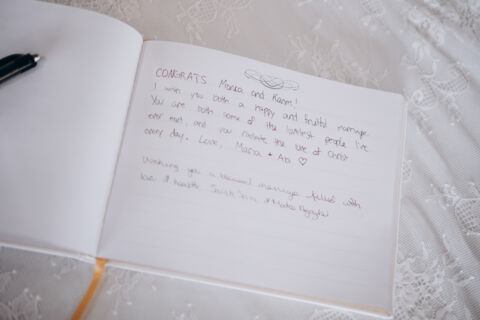 CONGRATS Monica and Karim!
I wish you both a happy and fruitful marriage.
You are both some of the loveliest people I've
ever met, and you radiate the love of Christ
every day. Love, Maria + Abi ♡
Wishing you a blessed marriage filled with
love & health. Sarah